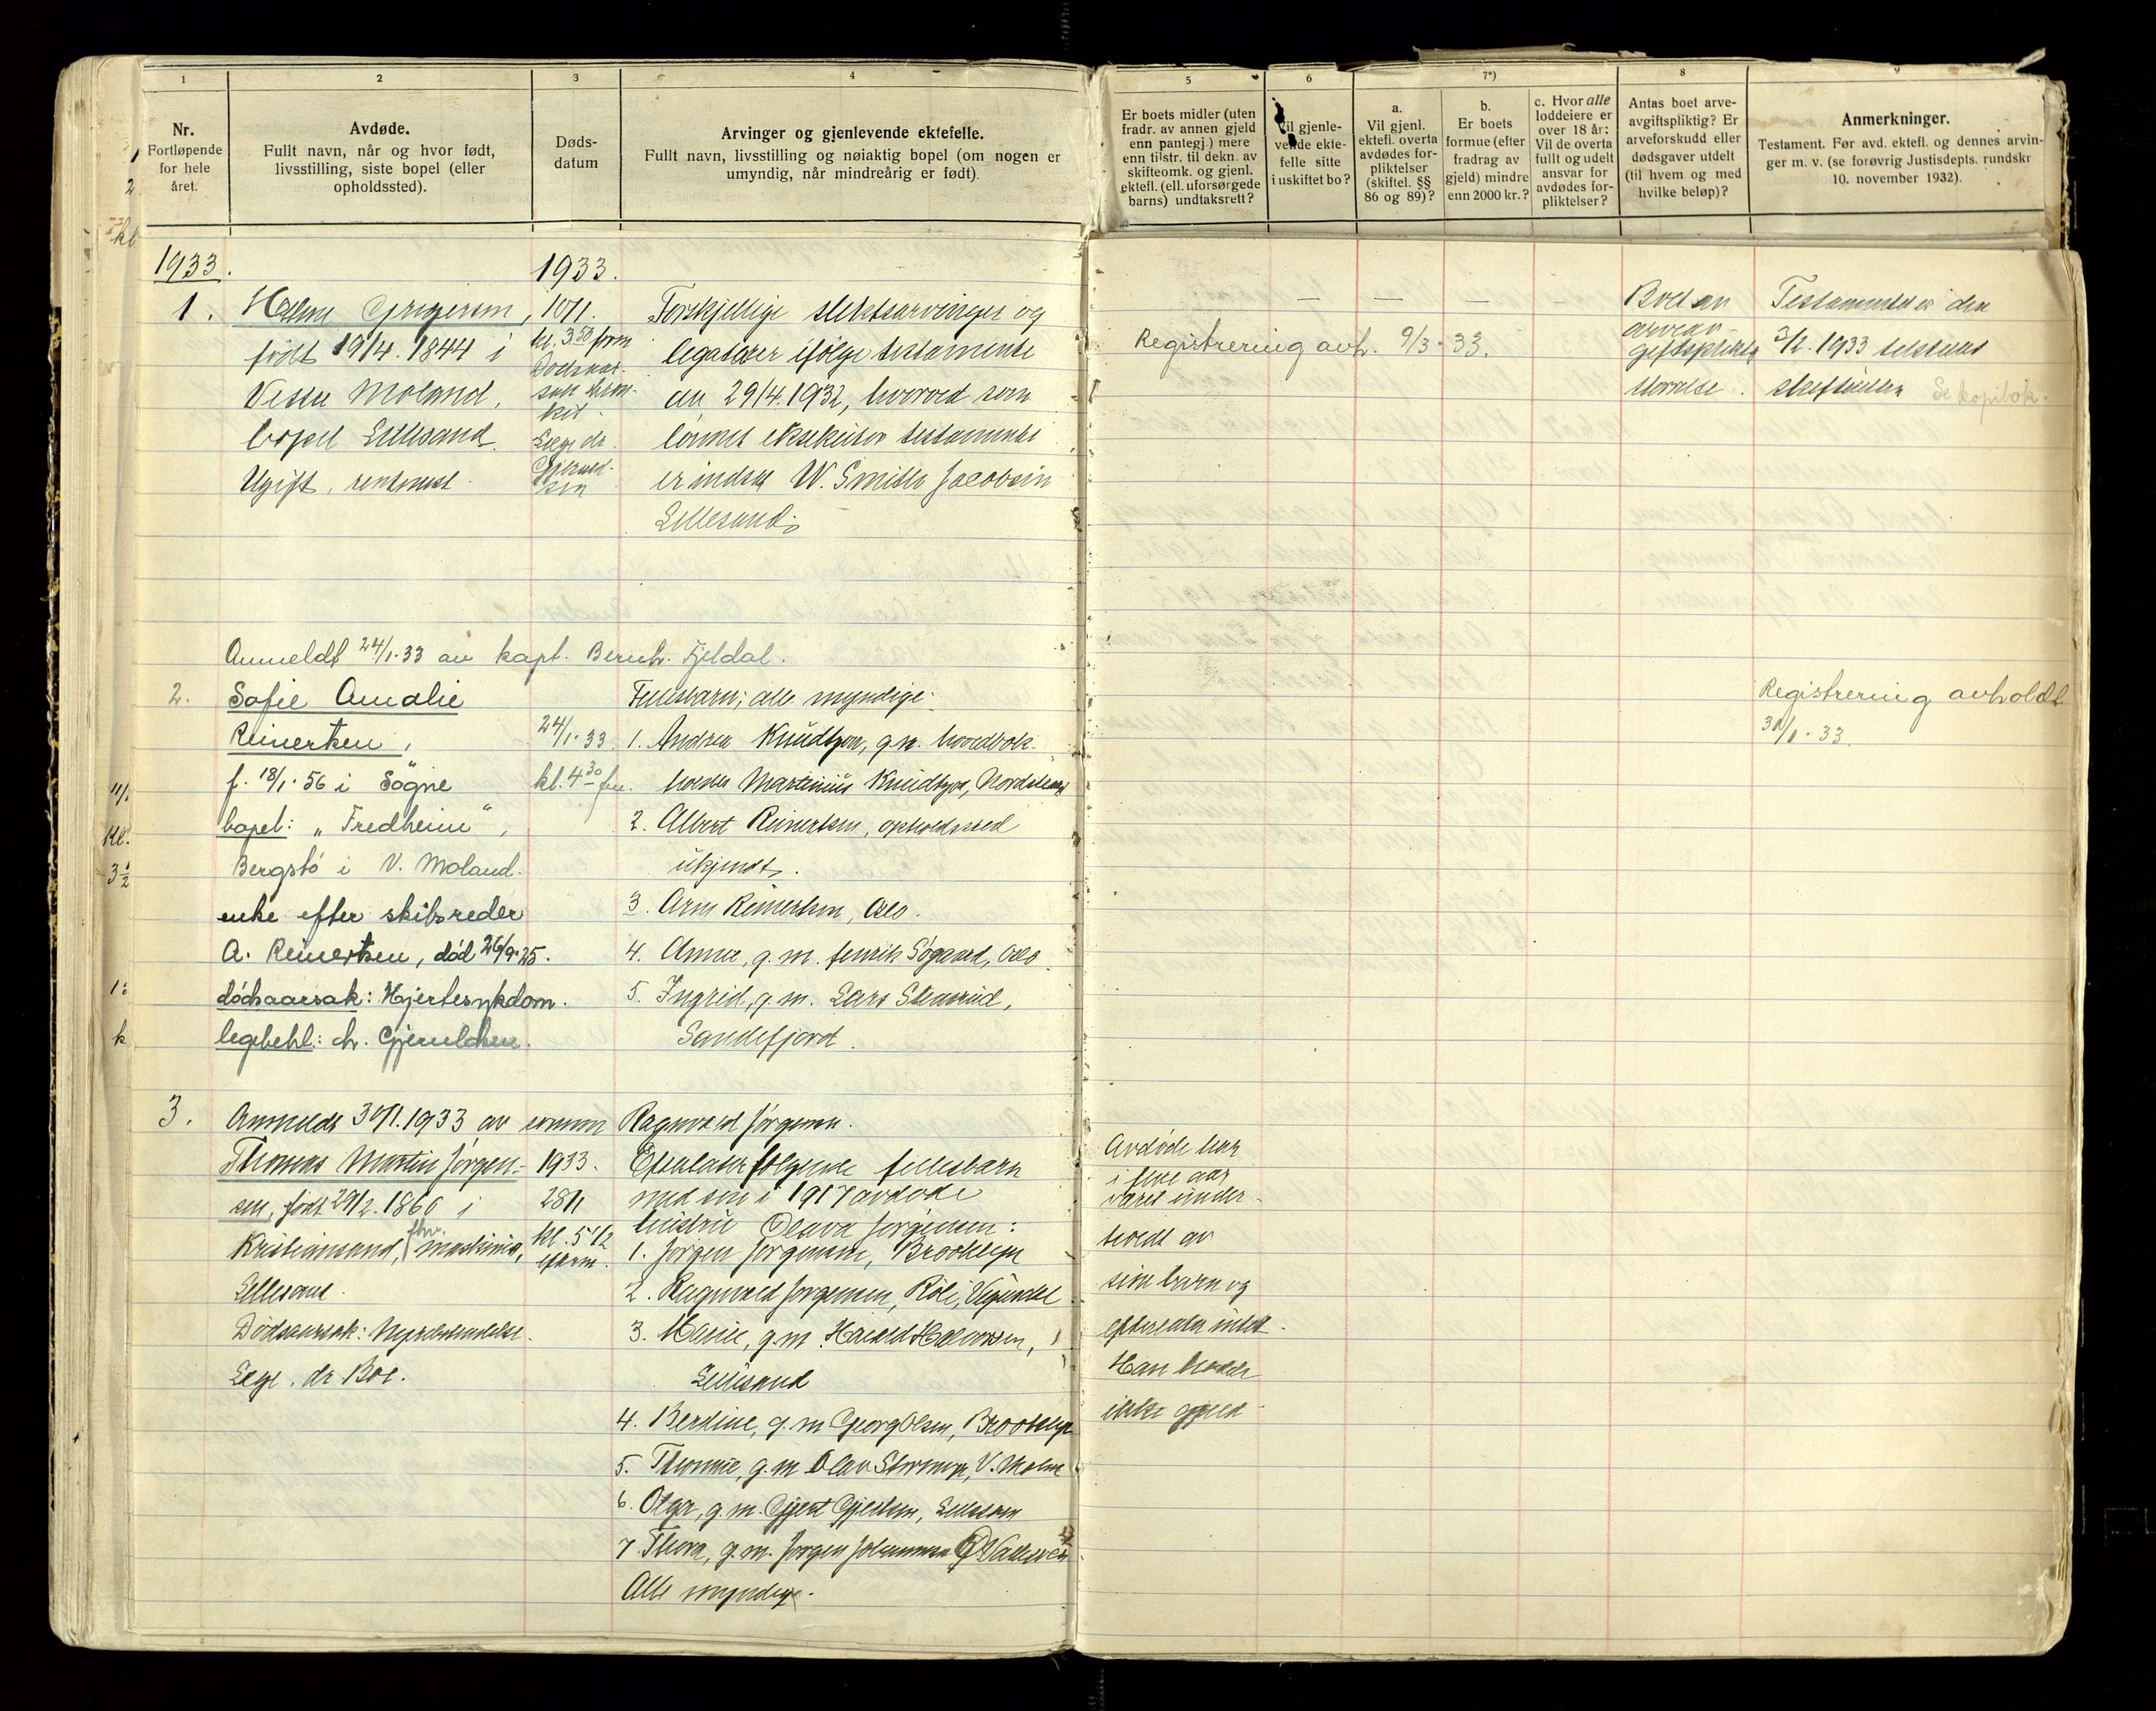 1
Nr.
Fortløpende
for hele
året.
2
Avdøde.
Fullt navn, når og hvor født,
livsstilling, siste bopel (eller
opholdssted).
3
Døds-
datum
4
Arvinger og gjenlevende ektefelle.
Fullt navn, livsstilling og nøiaktig bopel (om nogen er
umyndig, når mindreårig er født).
5
Er boets midler (uten
fradr. av annen gjeld
enn pantegj.) mere
enn tilstr. til dekn. av
skifteomk. og gjenl.
ektefl. (ell. uforsørgede
barns) undtaksrett?
6
Vil gjenle-
vende ekte-
felle sitte
i uskiftet bo?
7*)
a.
Vil gjenl.
ektefl. overta
avdødes for-
pliktelser
(skiftel. §§
86 og 89)?
b.
Er boets
formue (efter
fradrag av
gjeld) mindre
enn 2000 kr.?
c. Hvor alle
loddeiere er
over 18 år:
Vil de overta
fullt og udelt
ansvar for
avdødes for-
pliktelser?
8
Antas boet arve-
avgiftspliktig? Er
arveforskudd eller
dødsgaver utdelt
(til hvem og med
hvilke beløp)?
9
Anmerkninger.
Testament. Før avd. ektefl. og dennes arvin-
ger m. v. (se forøvrig Justisdepts. rundskr
10. november 1932).
1933.
1933.
1.
født 19/4. 1844 i
Vestre Moland,
bopel Lillesand.
Ugift,
10/1.
kl. 3 50 form
Læge dr.
Forskjellige slektsarvinger og
legatarer ifølge testamente
av 29/4. 1932, hvorved som
eksekutor testamenti
er indsat W. Smith Jacobsen
Lillesand.
Registrering avh. 9/3. 33.
— — — —
Boet er
arveav-
giftspliktig
Testamentet er den
3/2. 1933
Se kopibok.
Anmeldt 24/1. 33 av kapt. Bernh. Fjeldal.
2.
Sofie Amalie
Reinertsen,
f. 18/1. 56 i Søgne
bopel: „Fredheim“,
Bergstø i V. Moland.
enke efter skibsreder
A. Reinertsen, død 26/9. 25.
dødsaarsak: Hjertesykdom.
legebehl.: dr. Gjeruldsen.
24/1. 33.
kl. 4 30 fm.
Fellesbarn; alle myndige:
1. Andrea Knudtzon, g. m. hovedbok-
holder Martinius Knudtzon,
2. Albert Reinertsen, opholdssted
ukjendt.
3. Arne Reinertsen, Oslo.
4. Anna, g. m. Henrik Søgaard, Oslo.
5. Ingrid, g. m. Lars Stensrud,
Sandefjord.
Registrering avholdt
30/1. 33.
3.
Anmeldt 30/1. 1933 av sønnen Ragnvald Jørgensen.
Thomas Martin Jørgen-
sen, født 29/2. 1860 i
Kristiansand, fhv. maskinist,
Lillesand.
Dødsaarsak: Nyrebetendelse.
Læge: dr Boe.
1933.
28/1
kl. 5 1/2
efterm.
Efterlater følgende fellesbarn
med sin i 1917 avdøde
hustru Olava Jørgensen:
1. Jørgen Jørgensen, Brooklyn
2. Ragnvald Jørgensen,
3. Marie, g. m. Harald Halvorsen,
Lillesand
4. Berdine, g. m Georg Olsen, Brooklyn
5. Thomine, g. m Olav
6. Olga, g. m. Gjert Gjertsen, Lillesand
7. Thora, g. m. Jørgen Johannesen
Alle myndige.
Avdøde har
i flere aar
været under-
holdt av
sine barn og
efterlater intet.
Han hadde
ikke gjeld.